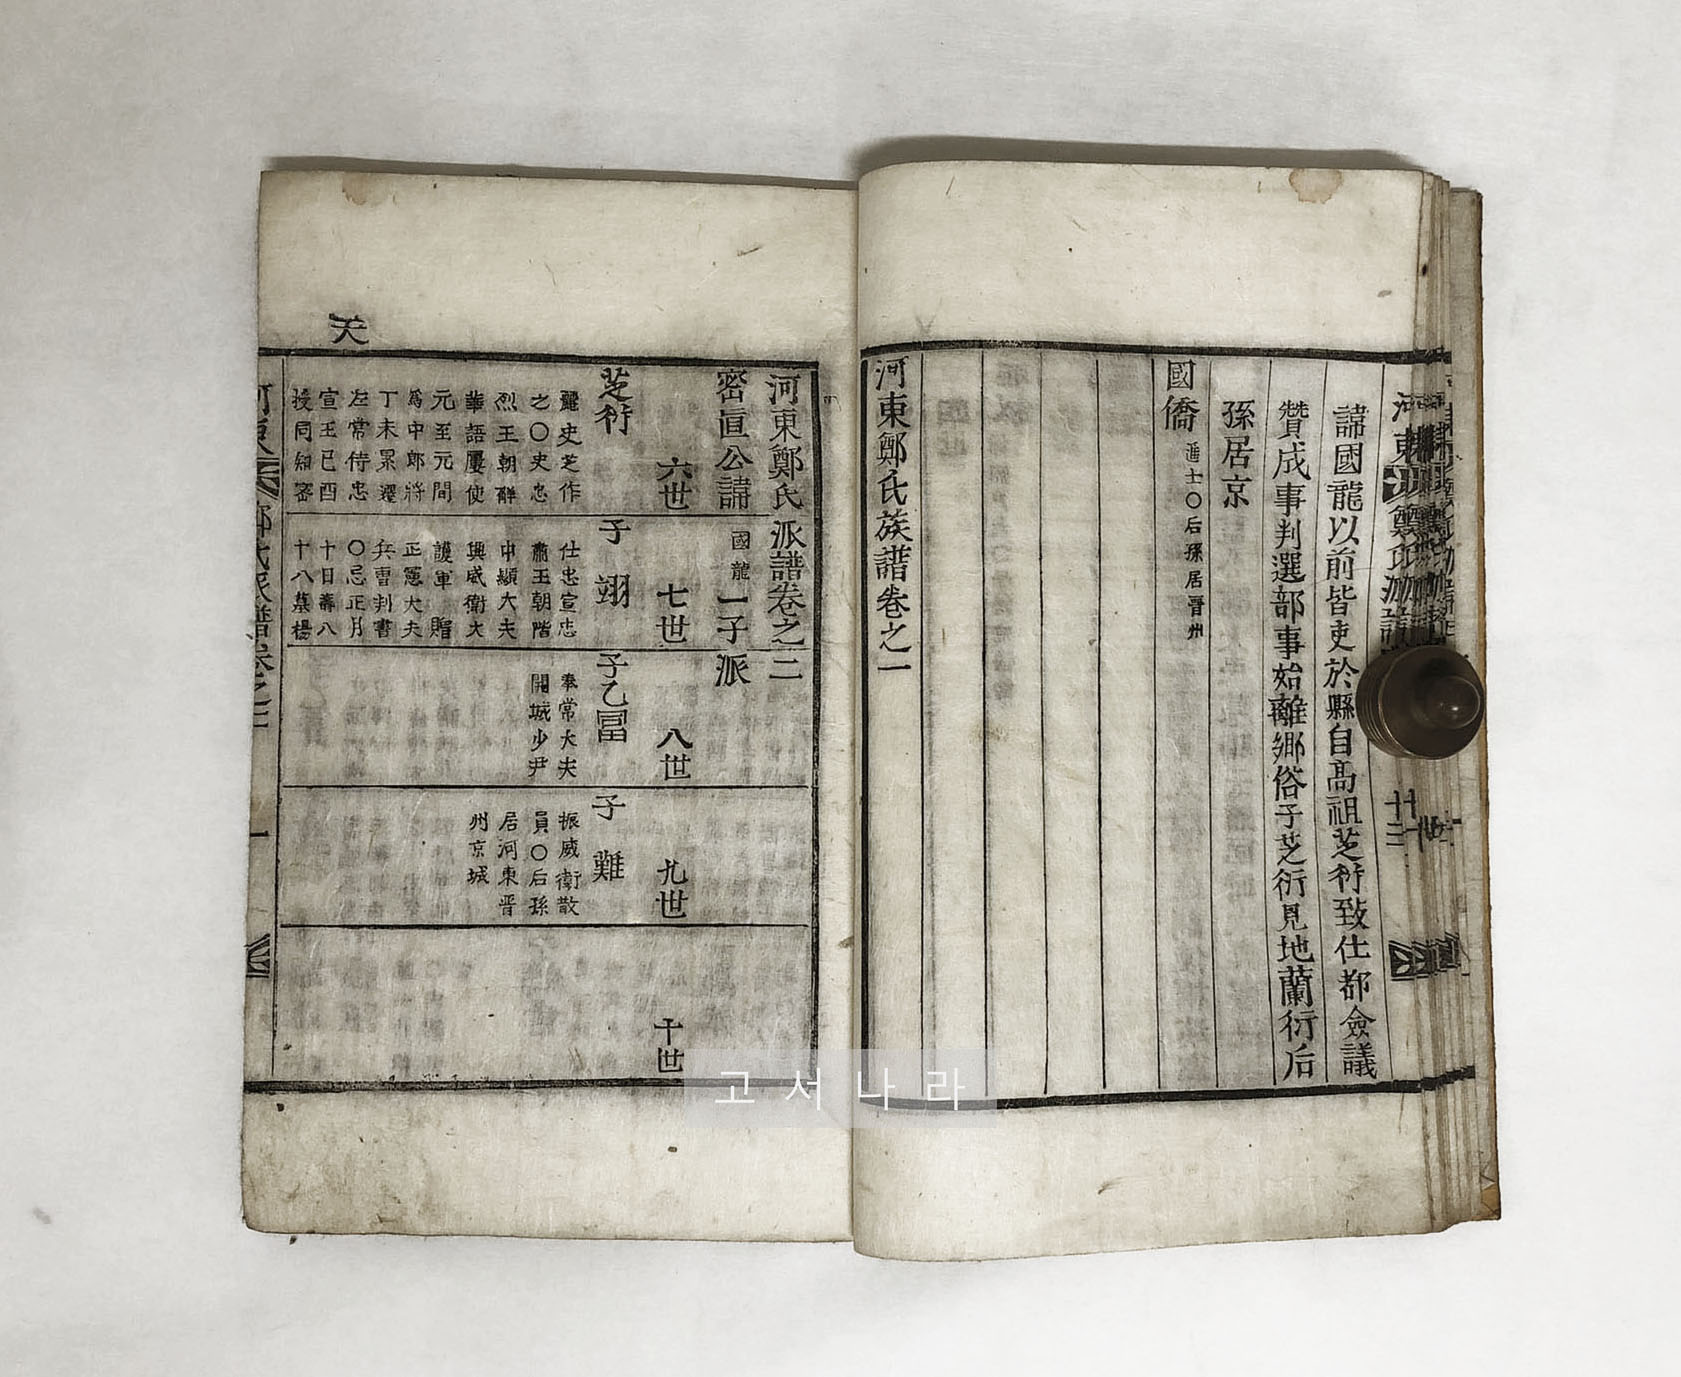 諱國龍以前皆吏於縣自高祖芝衍致仕都僉議
贊成事判選部事始離鄉俗子芝衍見地蘭衍后
孫居京
國僑 進士○后孫居晋州
河東鄭氏族譜卷之一
河東鄭氏派譜卷之二
密直公諱國龍一子派
六世
七世
八世
九世
十世
芝衍
麗史芝作
之○史忠
烈王朝解
華語屢使
元至元間
爲中郎將
丁未累遷
左常侍忠
宣王己酉
授同知密
子 翊
仕忠宣忠
肅王朝階
中顯大夫
興威衛大
護軍 贈
正憲大夫
兵曹判書
○忌正月
十日壽八
十八墓楊
子乙冨
奉常大夫
開城少尹
子 難
振威衛散
員○后孫
居河東晋
州京城
天
고서나라